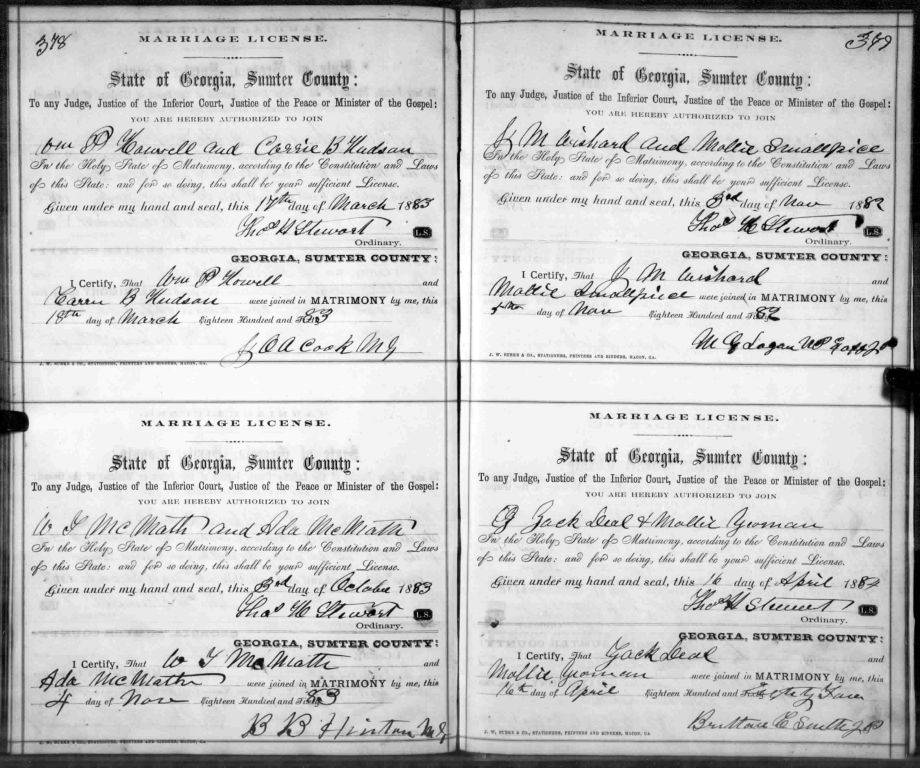 378
MARRIAGE LICENSE.
State of Georgia, Sumter County:
To any Judge, Justice of the Inferior Court, Justice of the Peace or Minister of the Gospel:
YOU ARE HEREBY AUTHORIZED TO JOIN
Wm P Howell and Carrie B Hudson
In the Holy State of Matrimony, according to the Constitution and Laws
of this State: and for so doing, this shall be your sufficient License.
Given under my hand and seal, this 17th day of March 1883
Thos H Stewart L.S.
Ordinary.
GEORGIA, SUMTER COUNTY:
I Certify, That Wm P Howell and
B Hudson were joined in MATRIMONY by me, this
18th day of March Eighteen Hundred and 83
J O A Cook M G
J. W. BURKE & CO., STATIONERS, PRINTERS AND BINDERS, MACON, GA.
MARRIAGE LICENSE.
State of Georgia, Sumter County:
To any Judge, Justice of the Inferior Court, Justice of the Peace or Minister of the Gospel:
YOU ARE HEREBY AUTHORIZED TO JOIN
W T McMath and Ada McMath
In the Holy State of Matrimony, according to the Constitution and Laws
of this State: and for so doing, this shall be your sufficient License.
Given under my hand and seal, this 3rd day of October 1883
Thos H Stewart L.S.
Ordinary.
GEORGIA, SUMTER COUNTY:
I Certify, That W T McMath and
Ada McMath were joined in MATRIMONY by me, this
4 day of Nov Eighteen Hundred and 83
B B Hinton M G
J. W. BURKE & CO., STATIONERS, PRINTERS AND BINDERS, MACON, GA.
379
MARRIAGE LICENSE.
State of Georgia, Sumter County:
To any Judge, Justice of the Inferior Court, Justice of the Peace or Minister of the Gospel:
YOU ARE HEREBY AUTHORIZED TO JOIN
J M Wishard and Mollie Smallprice
In the Holy State of Matrimony, according to the Constitution and Laws
of this State: and for so doing, this shall be your sufficient License.
Given under my hand and seal, this 3rd day of Nov 1882
Thos H Stewart L.S.
Ordinary.
GEORGIA, SUMTER COUNTY:
I Certify, That J M Wishard and
Mollie Smallprice were joined in MATRIMONY by me, this
5th day of Nov Eighteen Hundred and 82
M G Logan
J. W. BURKE & CO., STATIONERS, PRINTERS AND BINDERS, MACON, GA.
MARRIAGE LICENSE.
State of Georgia, Sumter County:
To any Judge, Justice of the Inferior Court, Justice of the Peace or Minister of the Gospel:
YOU ARE HEREBY AUTHORIZED TO JOIN
Zack Deal & Mollie Yoman
In the Holy State of Matrimony, according to the Constitution and Laws
of this State: and for so doing, this shall be your sufficient License.
Given under my hand and seal, this 16 day of April
Thos H Stewart L.S.
Ordinary.
GEORGIA, SUMTER COUNTY:
I Certify, That Zack Deal and
Mollie Yoman were joined in MATRIMONY by me, this
16th day of April Eighteen Hundred and
E Smith J P
J. W. BURKE & CO., STATIONERS, PRINTERS AND BINDERS, MACON, GA